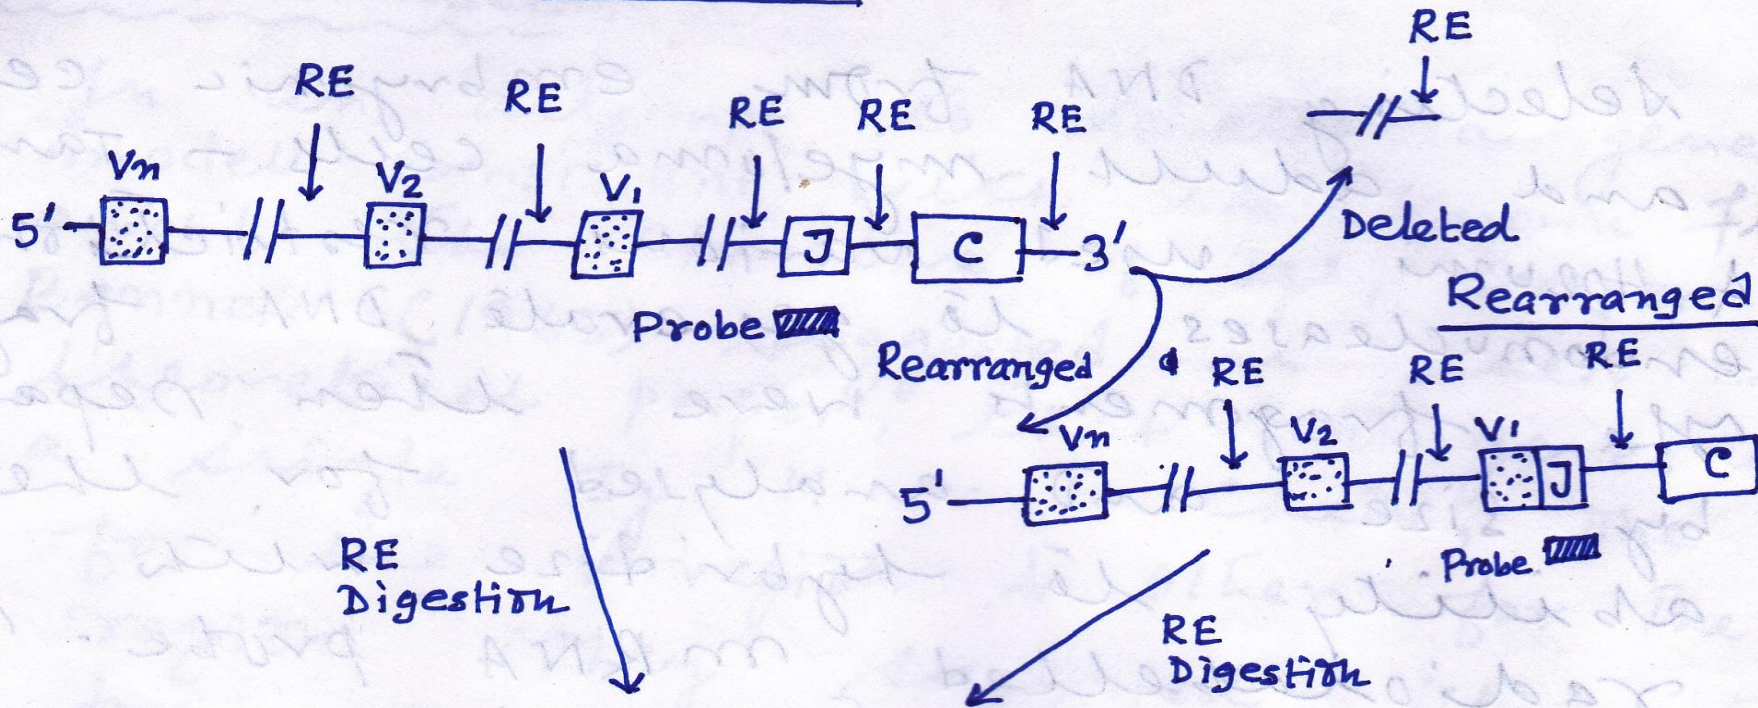 RE
RE
RE
RE
RE
RE
Vn
V2
V1
5'
J
C
3'
Deleted
Probe
Rearranged
Rearranged
RE
RE
RE
Vn
V2
V1
5'
J
C
Probe
RE
Digestion
RE
Digestion